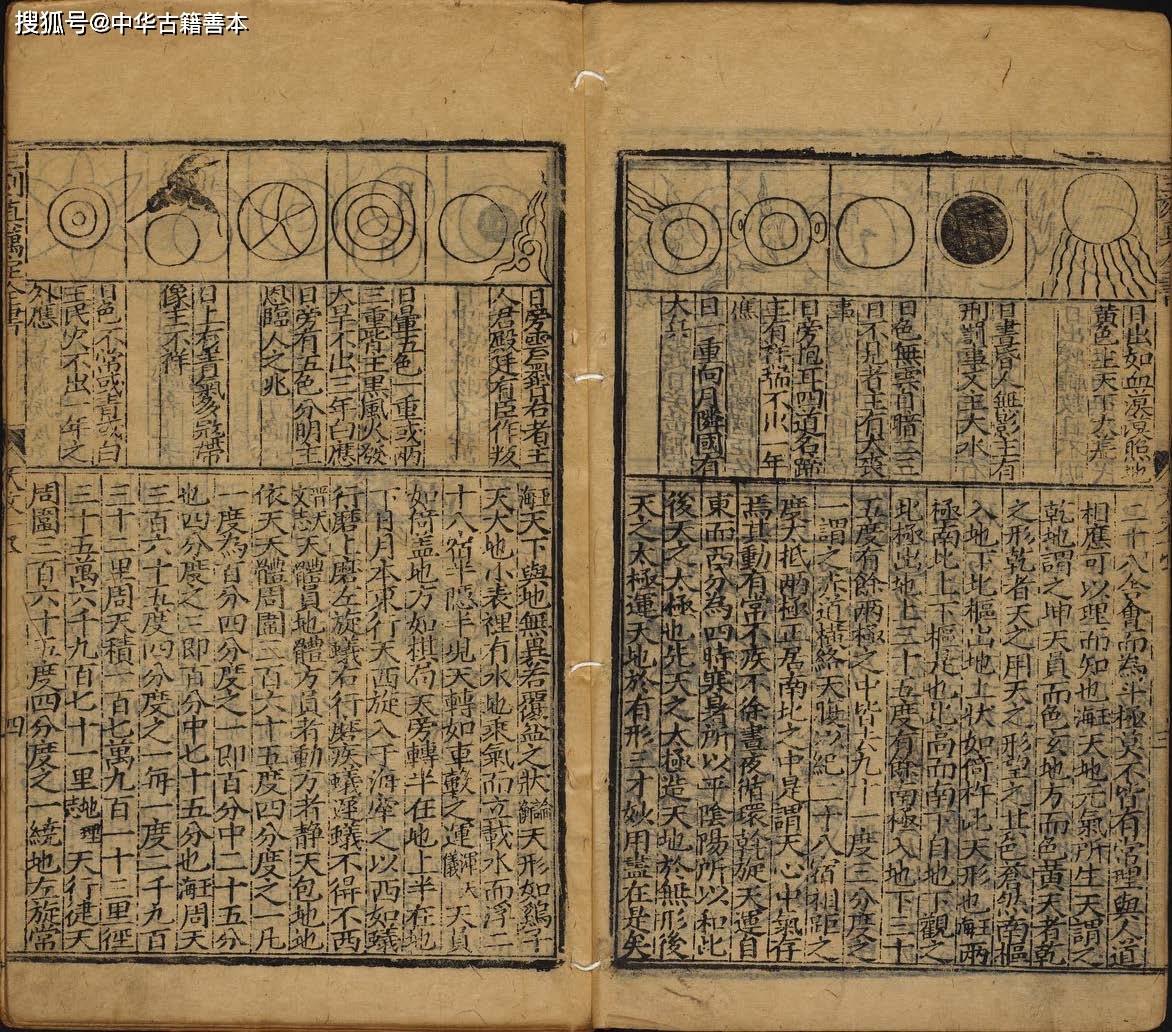 搜狐号@中华古籍善本
日出如血漠漠貽地
黄色主天下大荒
日晝昏人無影主有
刑罰事又主大水
日色無雲自暗三三
日不見者主有大喪
事
日旁抱耳四道名蹄
主有祥瑞不出一年
應
日一重向月隣國有
大兵
二十八舍會而為斗極莫不皆有常理與人道
相應可以理而知也玉海天地元氣所生天謂之
乾地謂之坤天員而色玄地方而色黄天者乾
之形乾者天之用天之形望之其色蒼然南樞
入地下北樞出地上狀如倚杵此天形也玉海兩
極南北上下樞是也北高而南下自地上觀之
北極出地上三十五度有餘南極入地下三十
五度有餘兩極之中皆去九十一度三分度之
一謂之赤道横絡天腹以紀二十八宿相距之
度大抵兩極正居南北之中是謂天心中氣存
焉其動有常不疾不徐晝夜循環斡旋天運自
東而西分為四時寒暑所以平陰陽所以和此
後天之太極也先天之太極造天地於無形後
天之太極運天地於有形三才妙用盡在是矣
日旁雲氣君者主
人君殿廷有臣作叛
日暈五色一重或兩
三重皆主黒風火發
大旱不出三年白應
日旁有五色分明主
恩臨人之兆
日上有青氣多冠帶
像主不祥
日色不常或青或白
主民灾不出一年之
外應
玉海天下與地無異若覆盆之狀論衡天形如鷄子
天大地小表裡有水地乘氣而立載水而浮二
十八宿半隱半現天轉如車轂之運渾天儀天員
如倚盖地方如棋局天旁轉半在地上半在地
下日月本東行天西旋入于海牽之以西如蟻
行磨上磨左旋蟻右行磨疾蟻遲蟻不得不西
文志天體員地體方員者動方者静天包地地
依天天體周圍三百六十五度四分度之一凡
一度為百分四分度之一即百分中二十五分
也四分度之三即百分中七十五分也玉海周天
三百六十五度四分度之一每一度二千九百
三十二里周天積一百七萬九百一十三里徑
三十五萬六千九百七十一里地理志天行健天
周圍三百六十五度四分度之一繞地左旋常
四